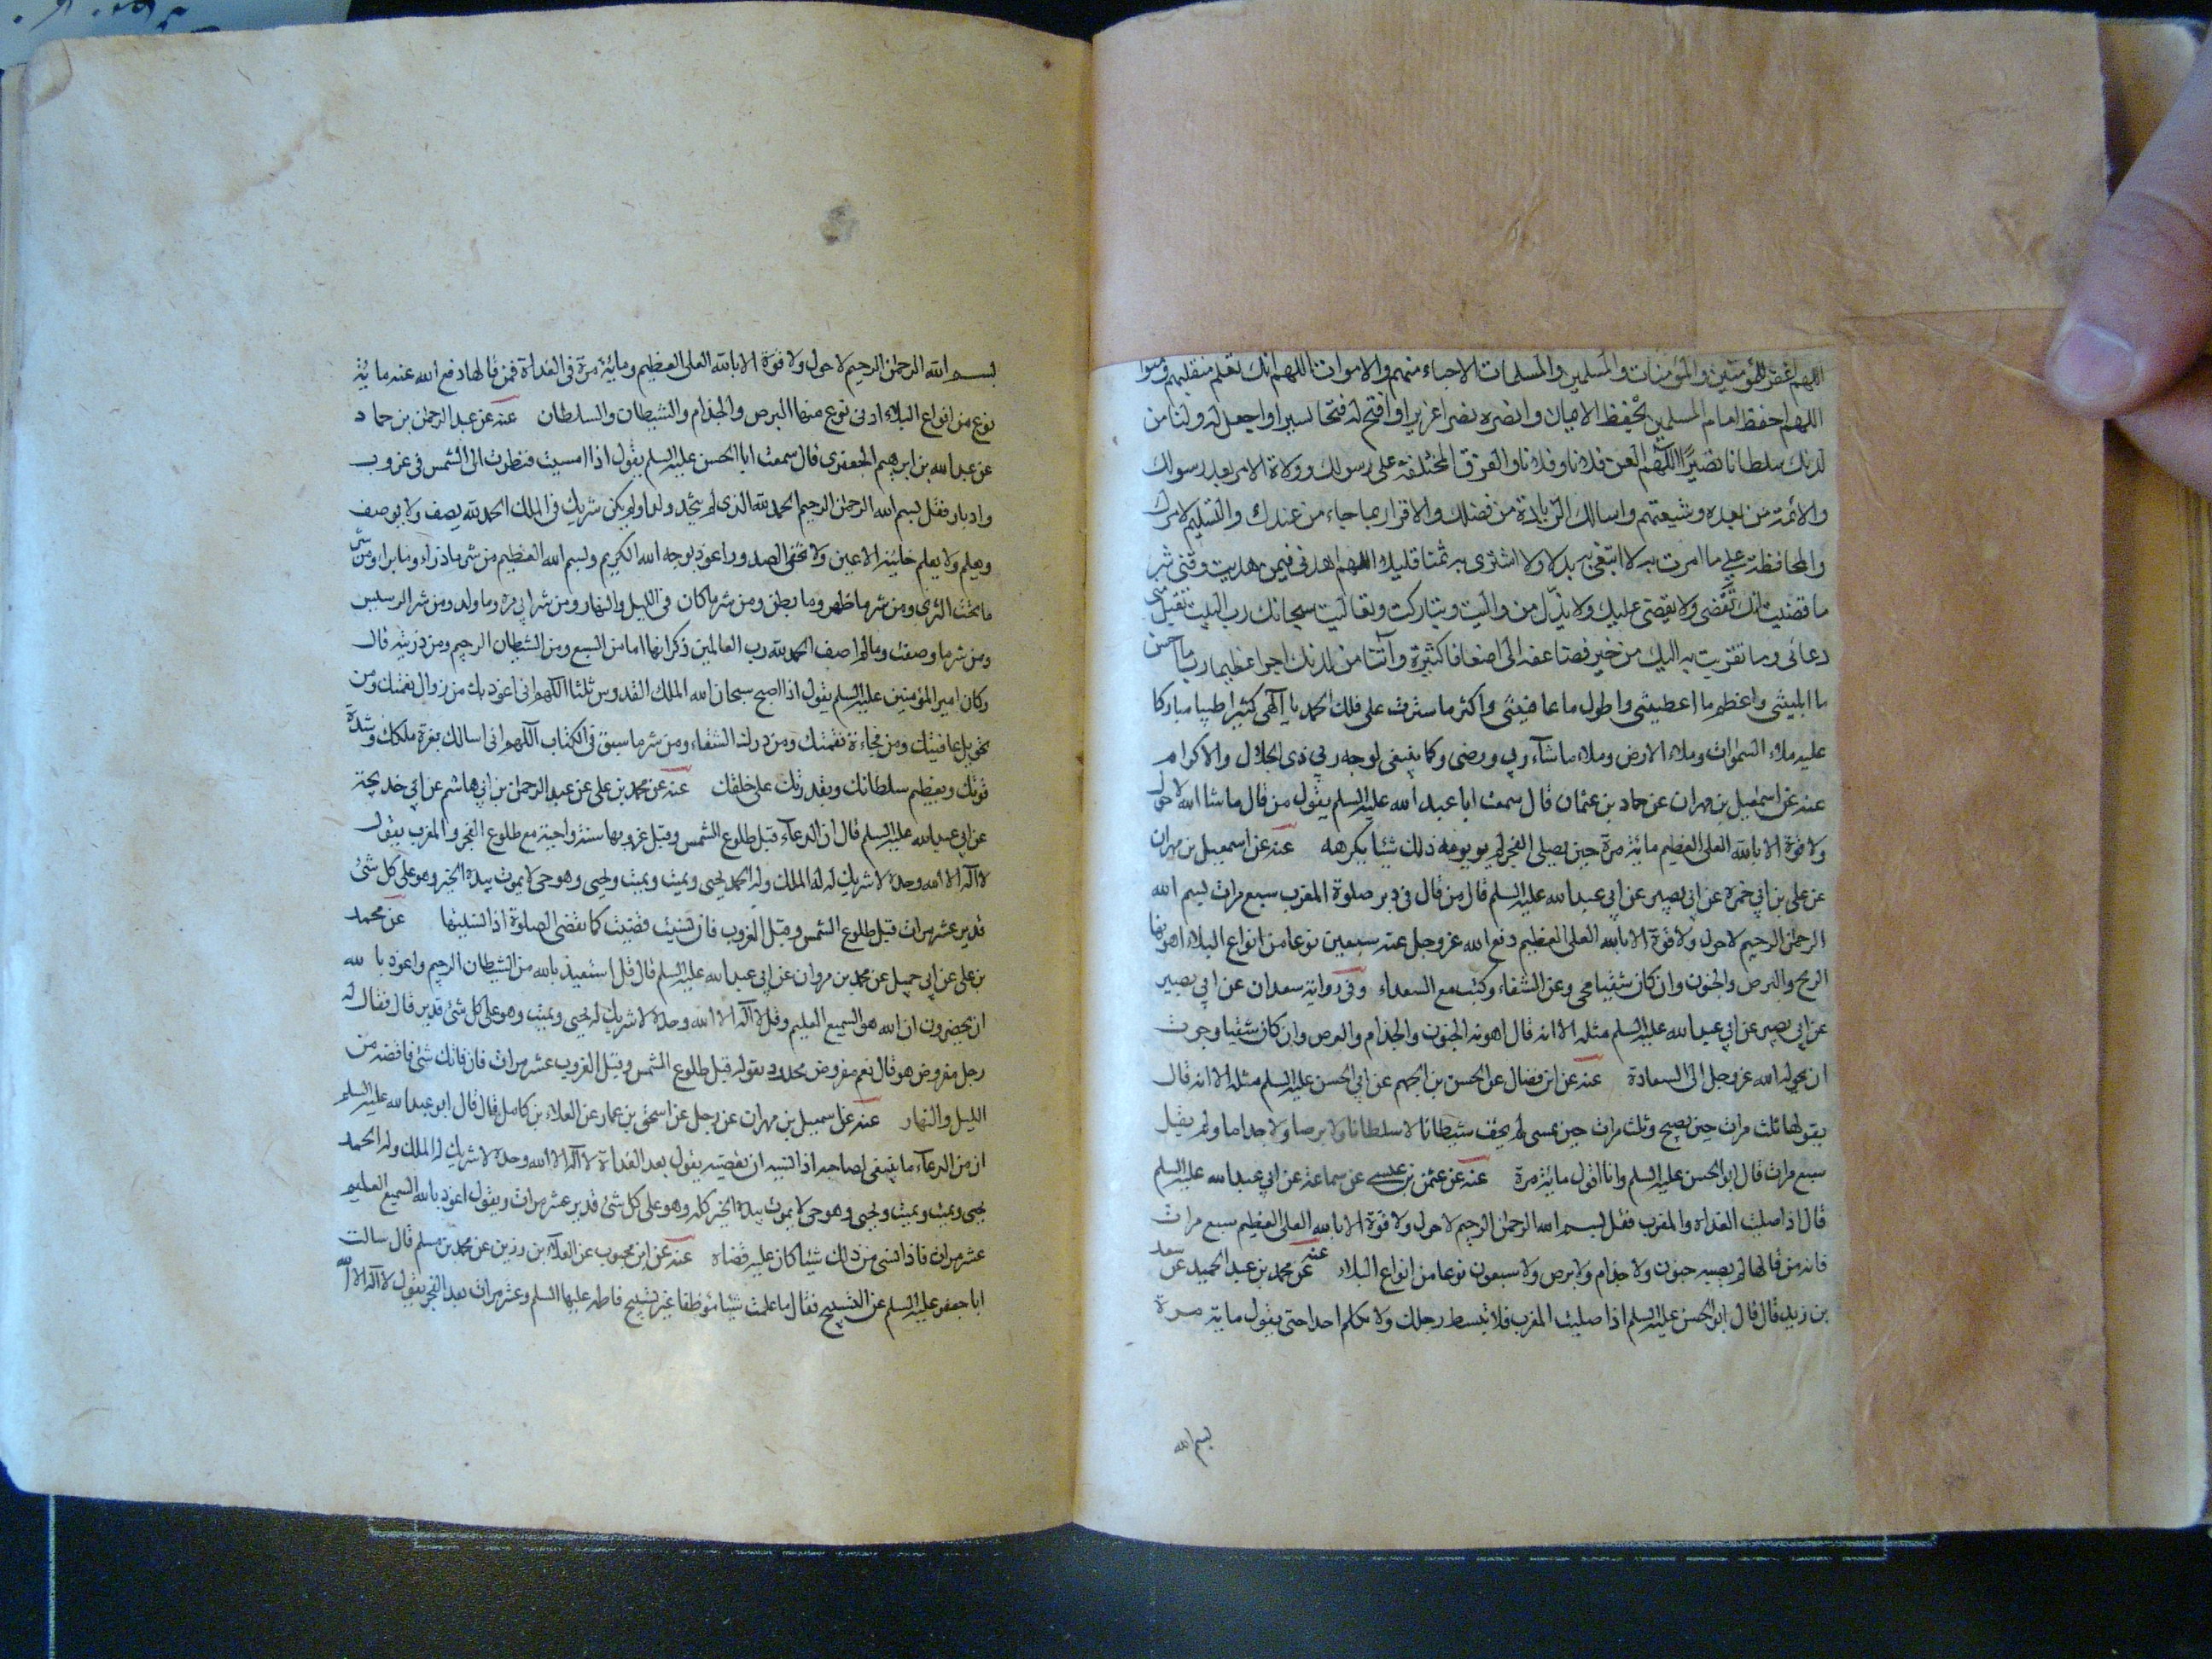 اللهم اغفر للمؤمنين والمؤمنات والمسلمين والمسلمات الاحياء منهم والاموات اللهم انك تعلم منقلبهم ومثوا
اللهم احفظ امام المسلمين بحفظ الايمان وانصره نصرا عزيزا وافتح له فتحا يسيرا واجعل له ولنا من
لدنك سلطانا نصيرا اللهم العن فلانا وفلانا والفرق المختلفة على رسولك وولاة الامر بعد رسولك
والائمة من بعده وشيعتهم واسالك الزيادة من فضلك والاقرار بما جاء من عندك والتسليم لامرك
والمحافظة على ما امرت به لا ابتغي به بدلا ولا اشترى به ثمنا قليلا اللهم اهدني فيمن هديت وقني شر
ما قضيت انك تقضى ولا يقضى عليك ولا يذل من واليت تباركت وتعاليت سبحانك رب البيت تقبل منى
دعائى وما تقربت به اليك من خير فضاعفه الى اضعافا كثيرة وآتنا من لدنك اجرا عظيما رب ما احسن
ما ابليتنى واعظم ما اعطيتنى واطول ما عافيتنى واكثر ما سترت على فلك الحمد يا آلهى كثيرا طيبا مباركا
عليه ملاء السموات وملاء الارض وملاء ما شآء ربي ورضى وكما ينبغى لوجه ربي ذى الجلال والاكرام
عنه عن اسمعيل بن مهران عن حماد بن عثمان قال سمعت ابا عبد الله عليه السلم يقول من قال ما شا الله لا حول
ولا قوة الا بالله العلى العظيم مائة مرة حين يصلى الفجر لم ير يومه ذلك شيئا يكرهه عنه عن اسمعيل بن مهران
عن على بن ابي حمزة عن ابي بصير عن ابي عبد الله عليه السلم قال من قال فى دبر صلوة المغرب سبع مرات بسم الله
الرحمن الرحيم لا حول ولا قوة الا بالله العلى العظيم دفع الله عز وجل عنه سبعين نوعا من انواع البلاء اهونها
الريح والبرص والجنون وان كان شقيا محى وعن الشقاء وكتب مع السعداء وفى رواية سعدان عن ابي بصير
عن ابي بصير عن ابي عبد الله عليه السلم مثله الا انه قال اهونه الجنون والجذام والبرص وان كان شقيا وجوت
ان يحوله الله عز وجل الى السعادة عنه عن ابن فضال عن الحسن بن الجهم عن ابي الحسن عليه السلم مثله الا انه قال
يقولها ثلث مرات حين يصبح وثلث مرات حين يمسى لم يخف شيطانا ولا سلطانا ولا برصا ولا جذاما ولم يقبل
سبع مرات قال ابو الحسن عليه السلم وانا اقول مائة مرة عنه عن عثمن بن عيسى عن سماعة عن ابي عبد الله عليه السلم
قال اذا صليت الغداة والمغرب فقل بسم الله الرحمن الرحيم لا حول ولا قوة الا بالله العلى العظيم سبع مرات
فانه من قالها لم يصبه جنون ولا جذام ولا برص ولا سبعون نوعا من انواع البلاء عنه عن محمد بن عبد الحميد عن سعد
بن زيد قال قال ابو الحسن عليه السلم اذا صليت المغرب فلا تبسط رجلك ولا تكلم احدا حتى يقول ماية مرة
بسم الله
بسم الله الرحمن الرحيم لا حول ولا قوة الا بالله العلى العظيم ومائة مرة فى الغداة فمن قالها دفع الله عنه مائة
نوع من انواع البلاء ادنى نوع منها البرص والجذام والشيطان والسلطان عنه عن عبد الرحمن بن حماد
عن عبد الله بن ابراهيم الجعفرى قال سمعت ابا الحسن عليه السلم يقول اذا امسيت فنظرت الى الشمس فى غروب
وادبار فقل بسم الله الرحمن الرحيم الحمد لله الذى لم يتخذ ولدا ولم يكن شريك فى الملك الحمد لله يصف ولا يوصف
ويعلم ولا يعلم خائنة الاعين ولا تخفى الصدور اعوذ بوجه الله الكريم وبسم الله العظيم من شر ما ذراء وما برا ومن شر
ما تحت الثرى ومن شر ما ظهر وما بطن ومن شر ما كان فى الليل والنهار ومن شر ابي مرة وما ولد ومن شر الرسيس
ومن شر ما وصفت وما لم اصف الحمد لله رب العالمين ذكر انها امان من السبع ومن الشيطان الرجيم ومن ذريته قال
وكان امير المؤمنين عليه السلم يقول اذا اصبح سبحان الله الملك القدوس ثلثا اللهم انى اعوذ بك من زوال نعمتك ومن
تحويل عافيتك ومن فجاءة نقمتك ومن درك الشقاء ومن شر ما سبق فى الكتاب اللهم انى اسالك بعزة ملكك وشدة
قوتك وبعظيم سلطانك وبقدرتك على خلقك عنه عن محمد بن على عن عبد الرحمن بن ابي هاشم عن ابي خديجة
عن ابي عبد الله عليه السلم قال ان الدعآء قبل طلوع الشمس وقبل غروبها سنة واجبة مع طلوع الفجر والمغرب يقول
لا اله الا الله وحده لا شريك له له الملك وله الحمد يحيى ويميت ويميت ويحيى وهو حى لا يموت بيده الخير وهو على كل شئ
قدير عشر مرات قبل طلوع الشمس وقبل الغروب فان نسيت قضيت كما تقضى الصلوة اذا نسيتها عن محمد
بن على عن ابي جميل عن محمد بن مروان عن ابي عبد الله عليه السلم قال قل استعيذ بالله من الشيطان الرجيم واعوذ بالله
ان يحضرون ان الله هو السميع العليم وقل لا اله الا الله وحده لا شريك له يحيى ويميت وهو على كل شئ قدير قال فقال له
رجل مفروض هو قال نعم مفروض محدود يقوله قبل طلوع الشمس وقبل الغروب عشر مرات فان فاتك شئ فاقضه من
الليل والنهار عنه عن اسمعيل بن مهران عن رجل عن اسحق بن عمار عن العلاء بن كامل قال قال ابو عبد الله عليه السلم
ان من الدعآء ما ينبغى لصاحبه اذا نسيه ان يقضيه يقول بعد الغداة لا اله الا الله وحده لا شريك له الملك وله الحمد
يحيى ويميت ويميت ويحيى وهو حى لا يموت بيده الخير كله وهو على كل شئ قدير عشر مرات ويقول اعوذ بالله السميع العليم
عشر مرات فاذا نسى من ذلك شيئا كان عليه قضاه عنه عن ابن محبوب عن العلآء بن رزين عن محمد بن مسلم قال سالت
ابا جعفر عليه السلم عن التسبيح فقال ما علمت شيئا مؤظفا غير تسبيح فاطمه عليها السلم وعشر مرات بعد الفجر يقول لا اله الا الله